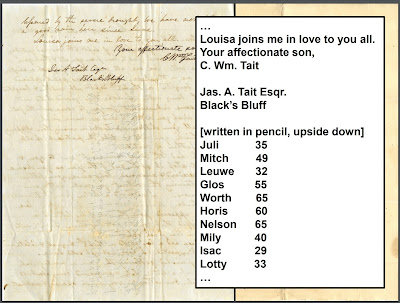 I joined by the severe drought, we have not
a good
Louisa joins me in love to you all.
Your affectionate son
C Wm Tait
Jas A Tait Esqr
Black's Bluff
...
Louisa joins me in love to you all.
Your affectionate son,
C. Wm. Tait
Jas. A. Tait Esqr.
Black's Bluff
[written in pencil, upside down]
Juli 35
Mitch 49
Leuwe 32
Glos 55
Worth 65
Horis 60
Nelson 65
Mily 40
Isac 29
Lotty 33
...